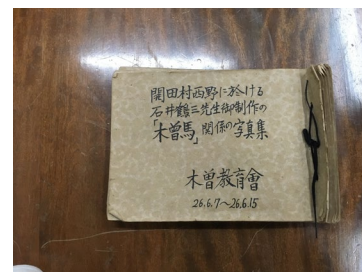 開田村西野に於ける
石井鶴三先生御制作の
「木曽馬」関係の写真集
木曽教育會
26.6.7～26.6.15